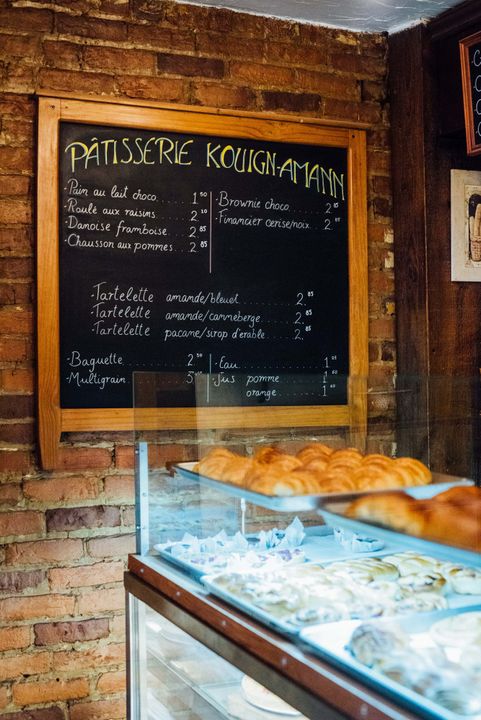 PÂTISSERIE KOUIGN-AMANN
- Pain au lait choco... 1.50
- Roulé aux raisins.... 2.10
- Danoise framboise... 2.85
- Chausson aux pommes... 2.85
- Brownie choco......... 2.85
- Financier cerise/noix.. 2.85
- Tartelette amande/bleuet......... 2.85
- Tartelette amande/canneberge..... 2.85
- Tartelette pacane/sirop d'érable.... 2.85
- Baguette......... 2.50
- Multigrain
- Eau.............. 1.05
- Jus pomme....... 1.40
orange....... 1.40